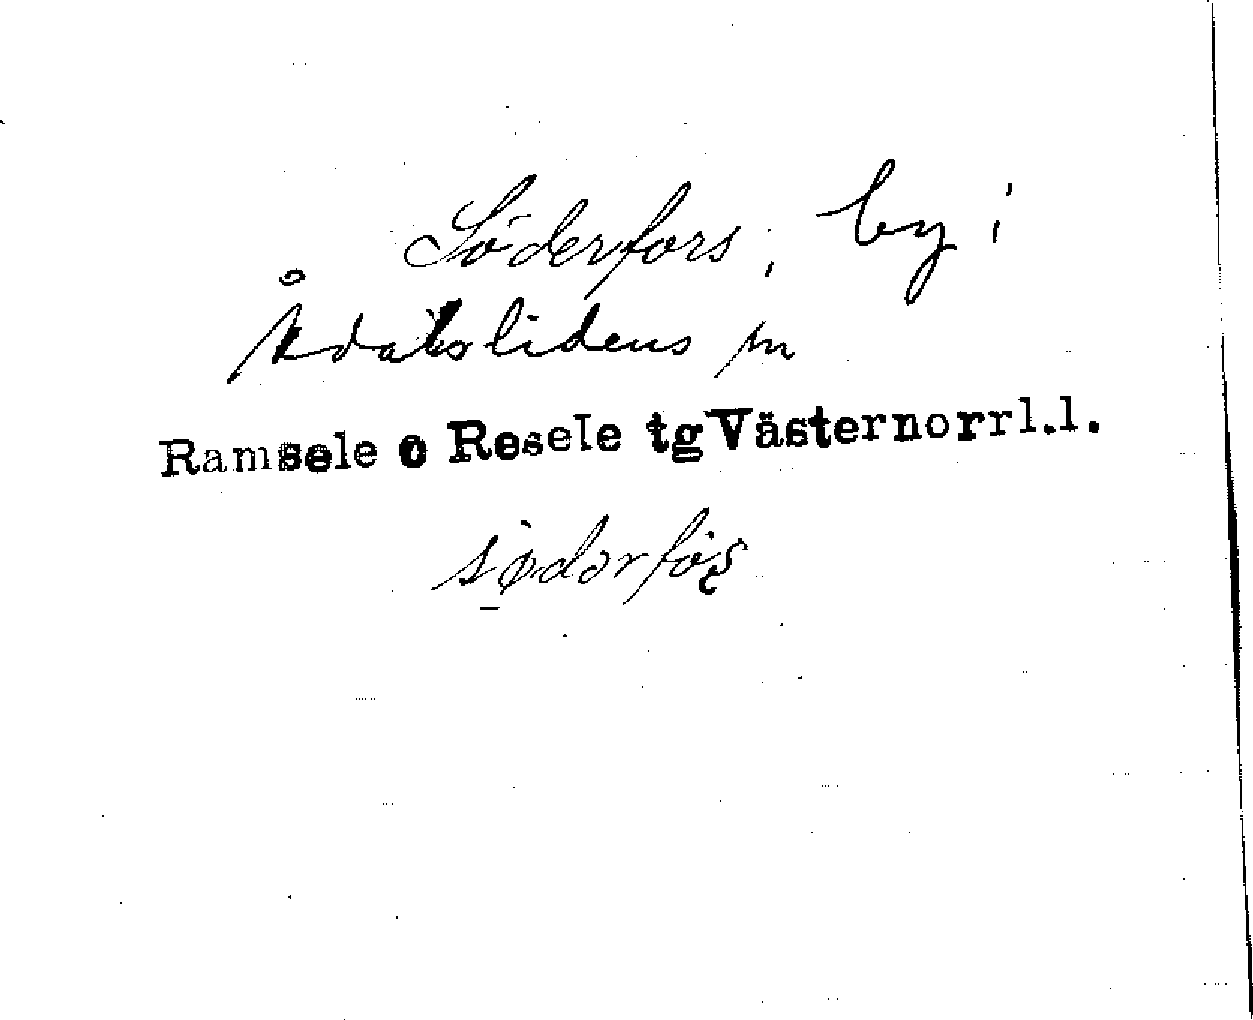 Söderfors, by i
Ådalslidens sn
Ramsele o Resele tg Västernorrl.l.